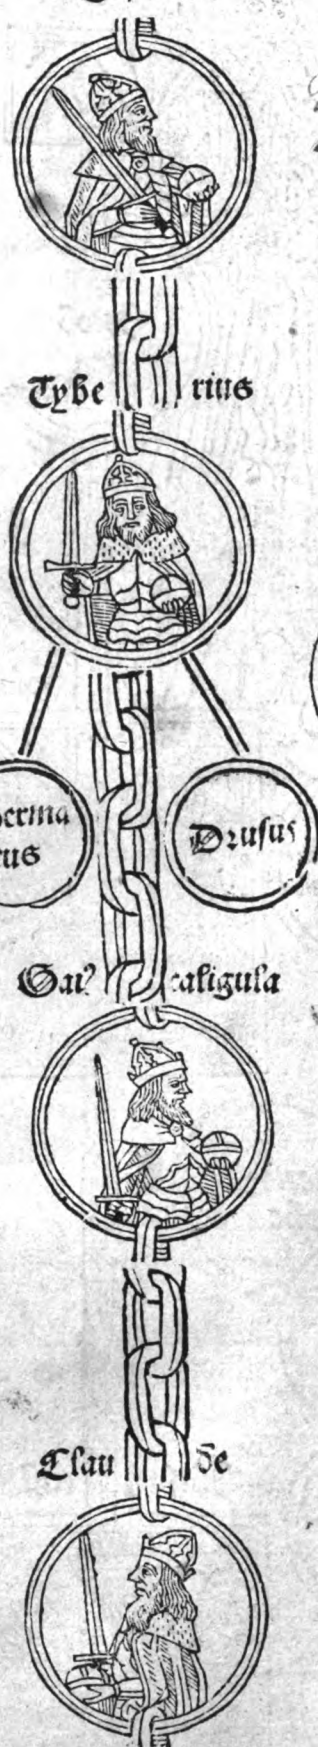 Tybe rius
Germa
Drusus
cus
Gai⁹ caligula
Clau de